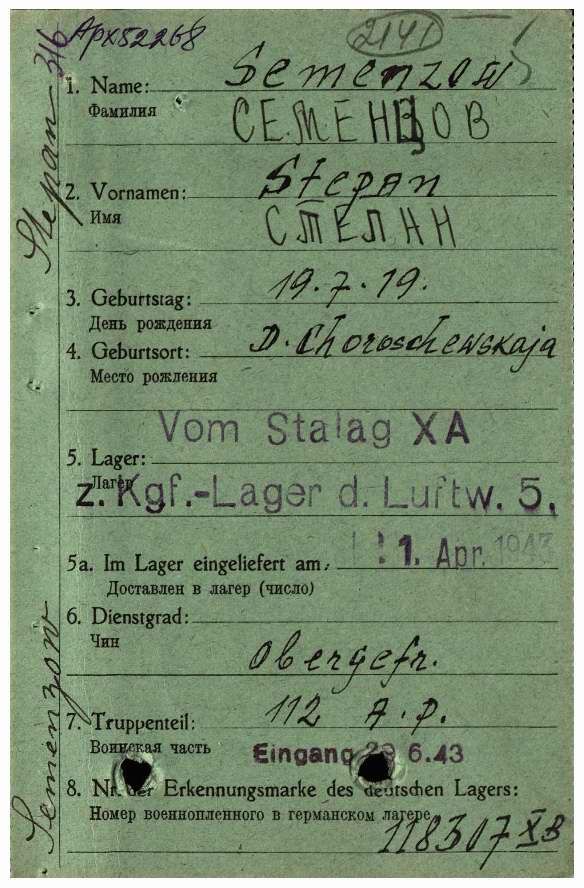 Арх52268
2141
316
Stepan
Semenzow
1. Name: Semenzow
Фамилия
СЕМЕНЦОВ
2. Vornamen: Stepan
Имя
СТЕПАН
3. Geburtstag: 19.7.19.
День рождения
4. Geburtsort: D. Choroschewskaja
Место рождения
Vom Stalag XA
5. Lager:
Лагер
z. Kgf.-Lager d. Luftw. 5,
1. Apr. 1943
5a. Im Lager eingeliefert am:
Доставлен в лагер (число)
6. Dienstgrad:
Чин
Obergefr.
7. Truppenteil: 112 A.P.
Воинская часть
Eingang 29 6.43
8. Nr. der Erkennungsmarke des deutschen Lagers:
Номер военнопленного в германском лагере
118307 XB